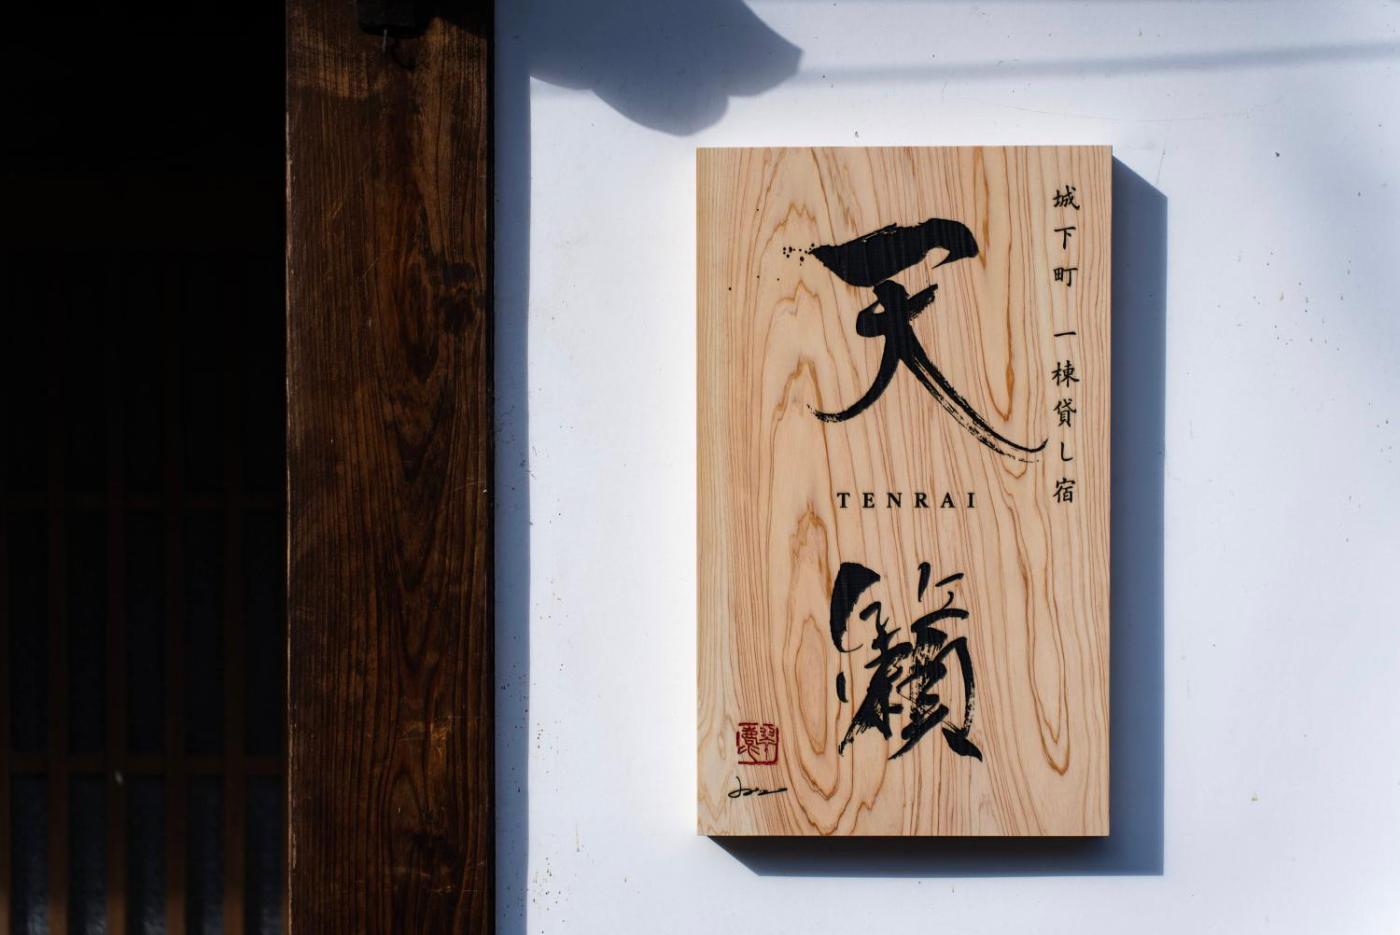 城下町 一棟貸し宿
天
TENRAI
籟